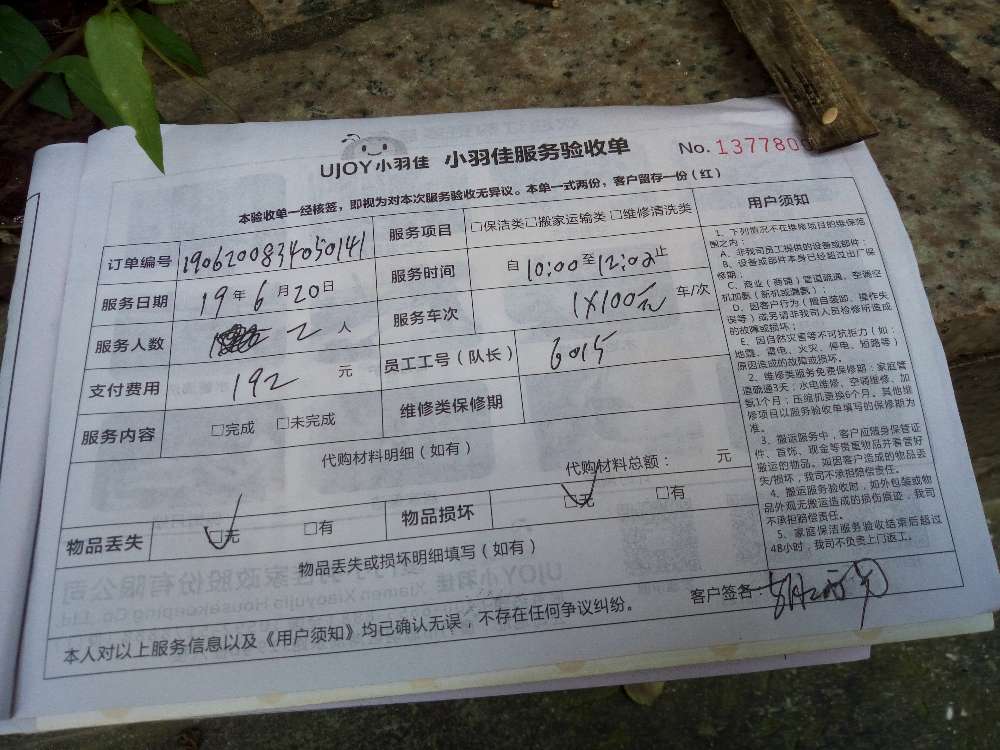 UJOY小羽佳 小羽佳服务验收单 No. 137780
本验收单一经核签，即视为对本次服务验收无异议。本单一式两份，客户留存一份（红）
订单编号 1906200834050141 服务项目 □保洁类□搬家运输类 □维修清洗类
服务日期 19年6月20日 服务时间 自10:00至12:00止
服务人数 2人 服务车次 1X100元 车/次
支付费用 192 元 员工工号（队长） 6015
服务内容 □完成 □未完成 维修类保修期
代购材料明细（如有）
代购材料总额： 元
物品丢失 □无 □有 物品损坏 □无 □有
物品丢失或损坏明细填写（如有）
本人对以上服务信息以及《用户须知》均已确认无误，不存在任何争议纠纷。 客户签名：
用户须知
1、下列情况不在维修项目的维保范
围之内：
A、非我司员工提供的设备或部件；
B、设备或部件本身已经超过出厂保
修期；
C、商业（商铺）管道疏通、空调空
机加氨（新机或漏氨）；
D、因客户行为（擅自装卸、操作失
误等）或另请非我司人员检修所造成
的故障或损坏；
E、因自然灾害等不可抗拒力（如：
地震、雷电、火灾、停电、短路等）
原因造成的故障或损坏。
2、维修类服务免费保修期：家庭管
道疏通3天；水电维修、空调维修、加
氨1个月；压缩机更换6个月。其他维
修项目以服务验收单填写的保修期为
准。
3、搬运服务中，客户应随身保管证
件、首饰、现金等贵重物品并看管好
搬运的物品。如因客户造成的物品丢
失/损坏，我司不承担赔偿责任。
4、搬运服务验收时，如外包装或物
品外观无搬运造成的损伤痕迹，我司
不承担赔偿责任。
5、家庭保洁服务验收结束后超过
48小时，我司不负责上门返工。